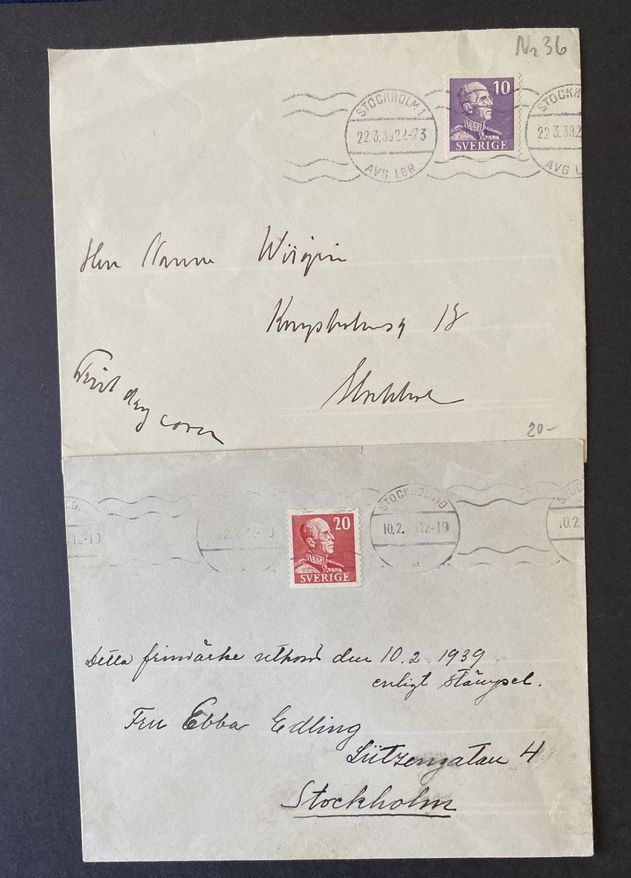 Nr 36
10
SVERIGE
STOCKHOLM 1
22.3.39 22-23
AVG LBR
STOCKH
22.3.39 2
AVG L
Herr
Stockholm
First day cover
20-
20
SVERIGE
STOCKHOLM
10.2. 12-19
10.2.
12-19
10.2.
Detta frimärke utkom den 10.2.1939
enligt stämpel.
Fru Ebba Edling
Lützengatan 4
Stockholm